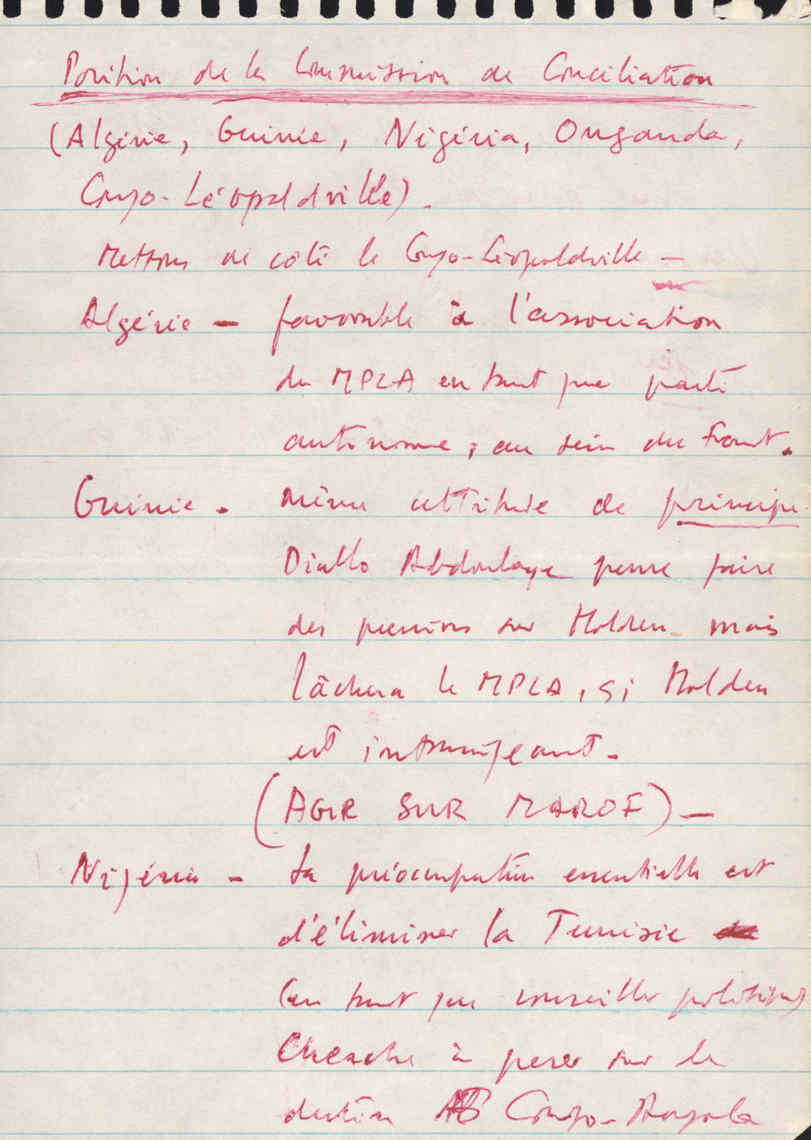 Position de la Commission de Conciliation
(Algérie, Guinée, Nigéria, Ouganda,
Congo-Léopoldville).
Mettons de côté le Congo-Léopoldville –
Algérie – favorable à l'association
du MPLA en tant que parti
autonome, au sein du Front.
Guinée. Même attitude de principe
Diallo Abdoulaye pense faire
des pressions sur Holden mais
lâchera le MPLA, si Holden
est intransigeant.
(AGIR SUR MAROF) –
Nigéria – La préoccupation essentielle est
d'éliminer la Tunisie
(en tant que conseiller politique)
Cherche à peser sur le
Congo-Angola